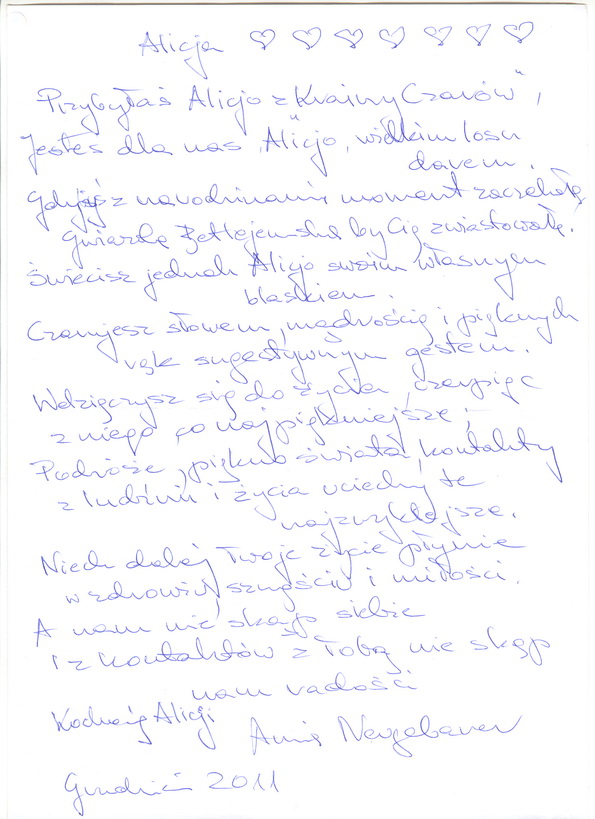 Alicja ♡ ♡ ♡ ♡ ♡ ♡ ♡
Przybyłaś Alicjo z Krainy Czarów",
Jesteś dla nas „Alicjo, wielkim losu
darem.
Gdybyś z narodzinami moment zaczekała,
Gwiazda Betlejemska by Cię zwiastowała.
Świecisz jednak Alicjo swoim własnym
blaskiem.
Czarujesz słowem, mądrością i pięknych
rąk sugestywnym gestem.
Wdzięczysz się do życia, czerpiąc
z niego co najpiękniejsze;
Podróże, piękno świata, kontakty
z ludźmi i życia uciechy te
najzwyklejsze.
Niech dalej Twoje życie płynie
w zdrowiu, szczęściu i miłości.
A nam nie skąp siebie
i z kontaktów z Tobą nie skąp
nam radości
Kochanej Alicji
Ania
Grudzień 2011